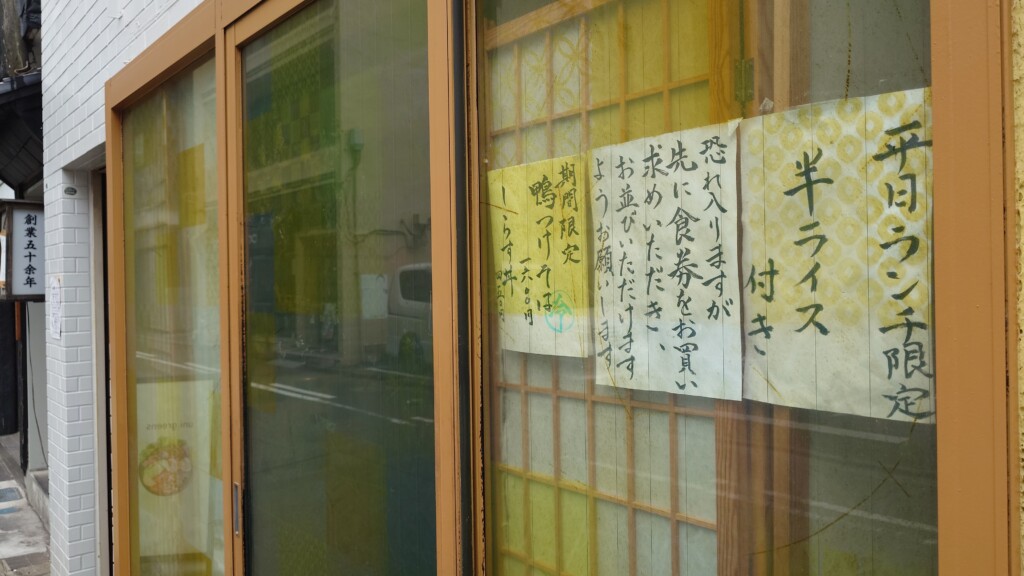 平日ランチ限定
半ライス
付き
恐れ入りますが
先に食券をお買い
求めいただき、
お並びいただけます
ようお願いします
期間限定
鴨つけそば
一六〇〇円
しらす丼
創業五十余年